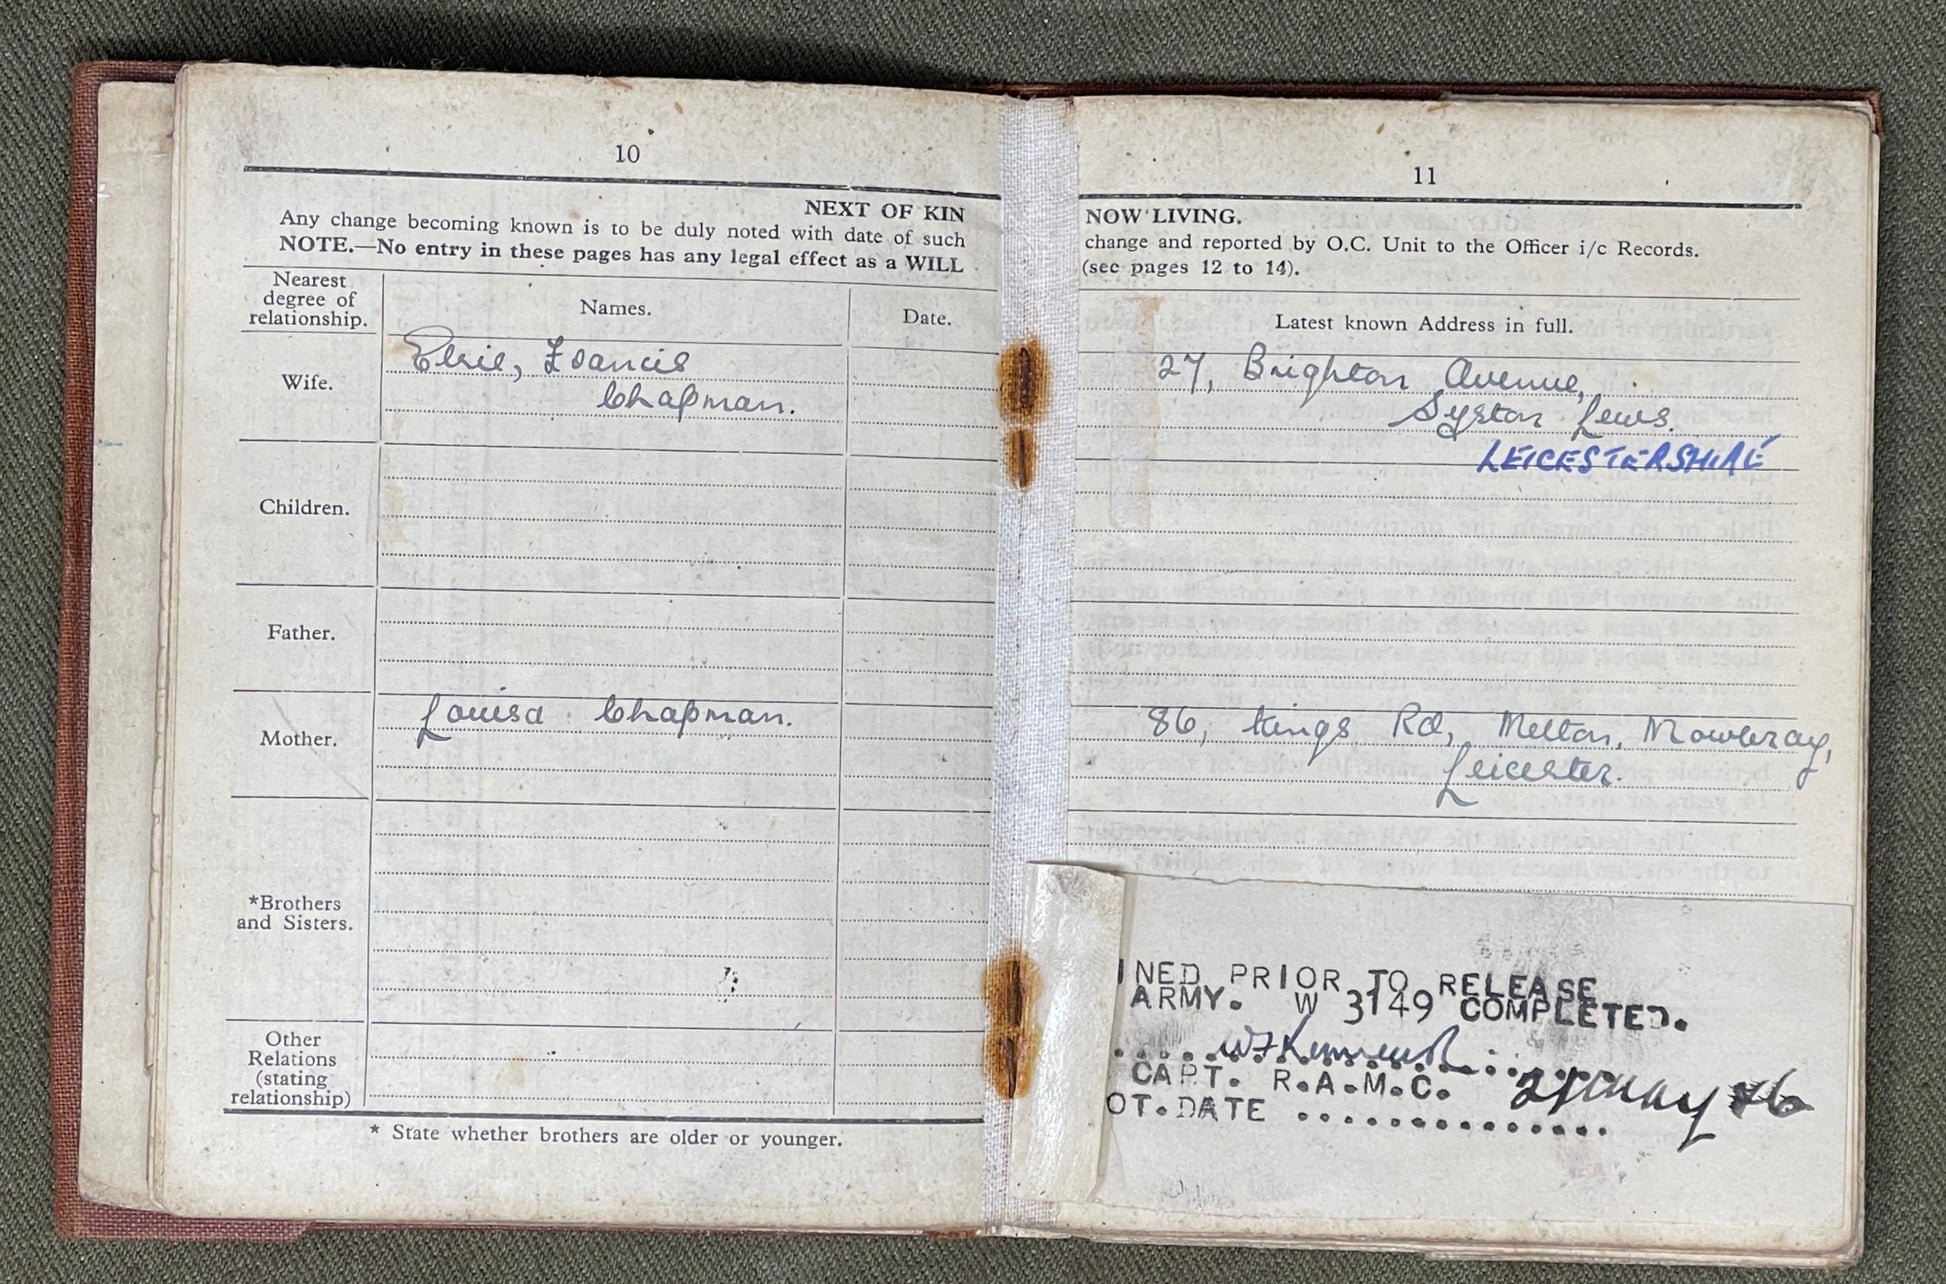 10
NEXT OF KIN
Any change becoming known is to be duly noted with date of such
NOTE.—No entry in these pages has any legal effect as a WILL
Nearest
degree of
relationship.
Names.
Date.
Wife.
Elsie, Francis
Chapman.
Children.
Father.
Mother.
Louisa Chapman.
*Brothers
and Sisters.
Other
Relations
(stating
relationship)
* State whether brothers are older or younger.
11
NOW LIVING.
change and reported by O.C. Unit to the Officer i/c Records.
(see pages 12 to 14).
Latest known Address in full.
27, Brighton Avenue,
Syston
LEICESTERSHIRE
86, Kings Rd, Melton, Mowbray,
Leicester.
INED PRIOR TO RELEASE
ARMY. W 3149 COMPLETED.
CAPT. R.A.M.C.
OT. DATE ..............
May 46